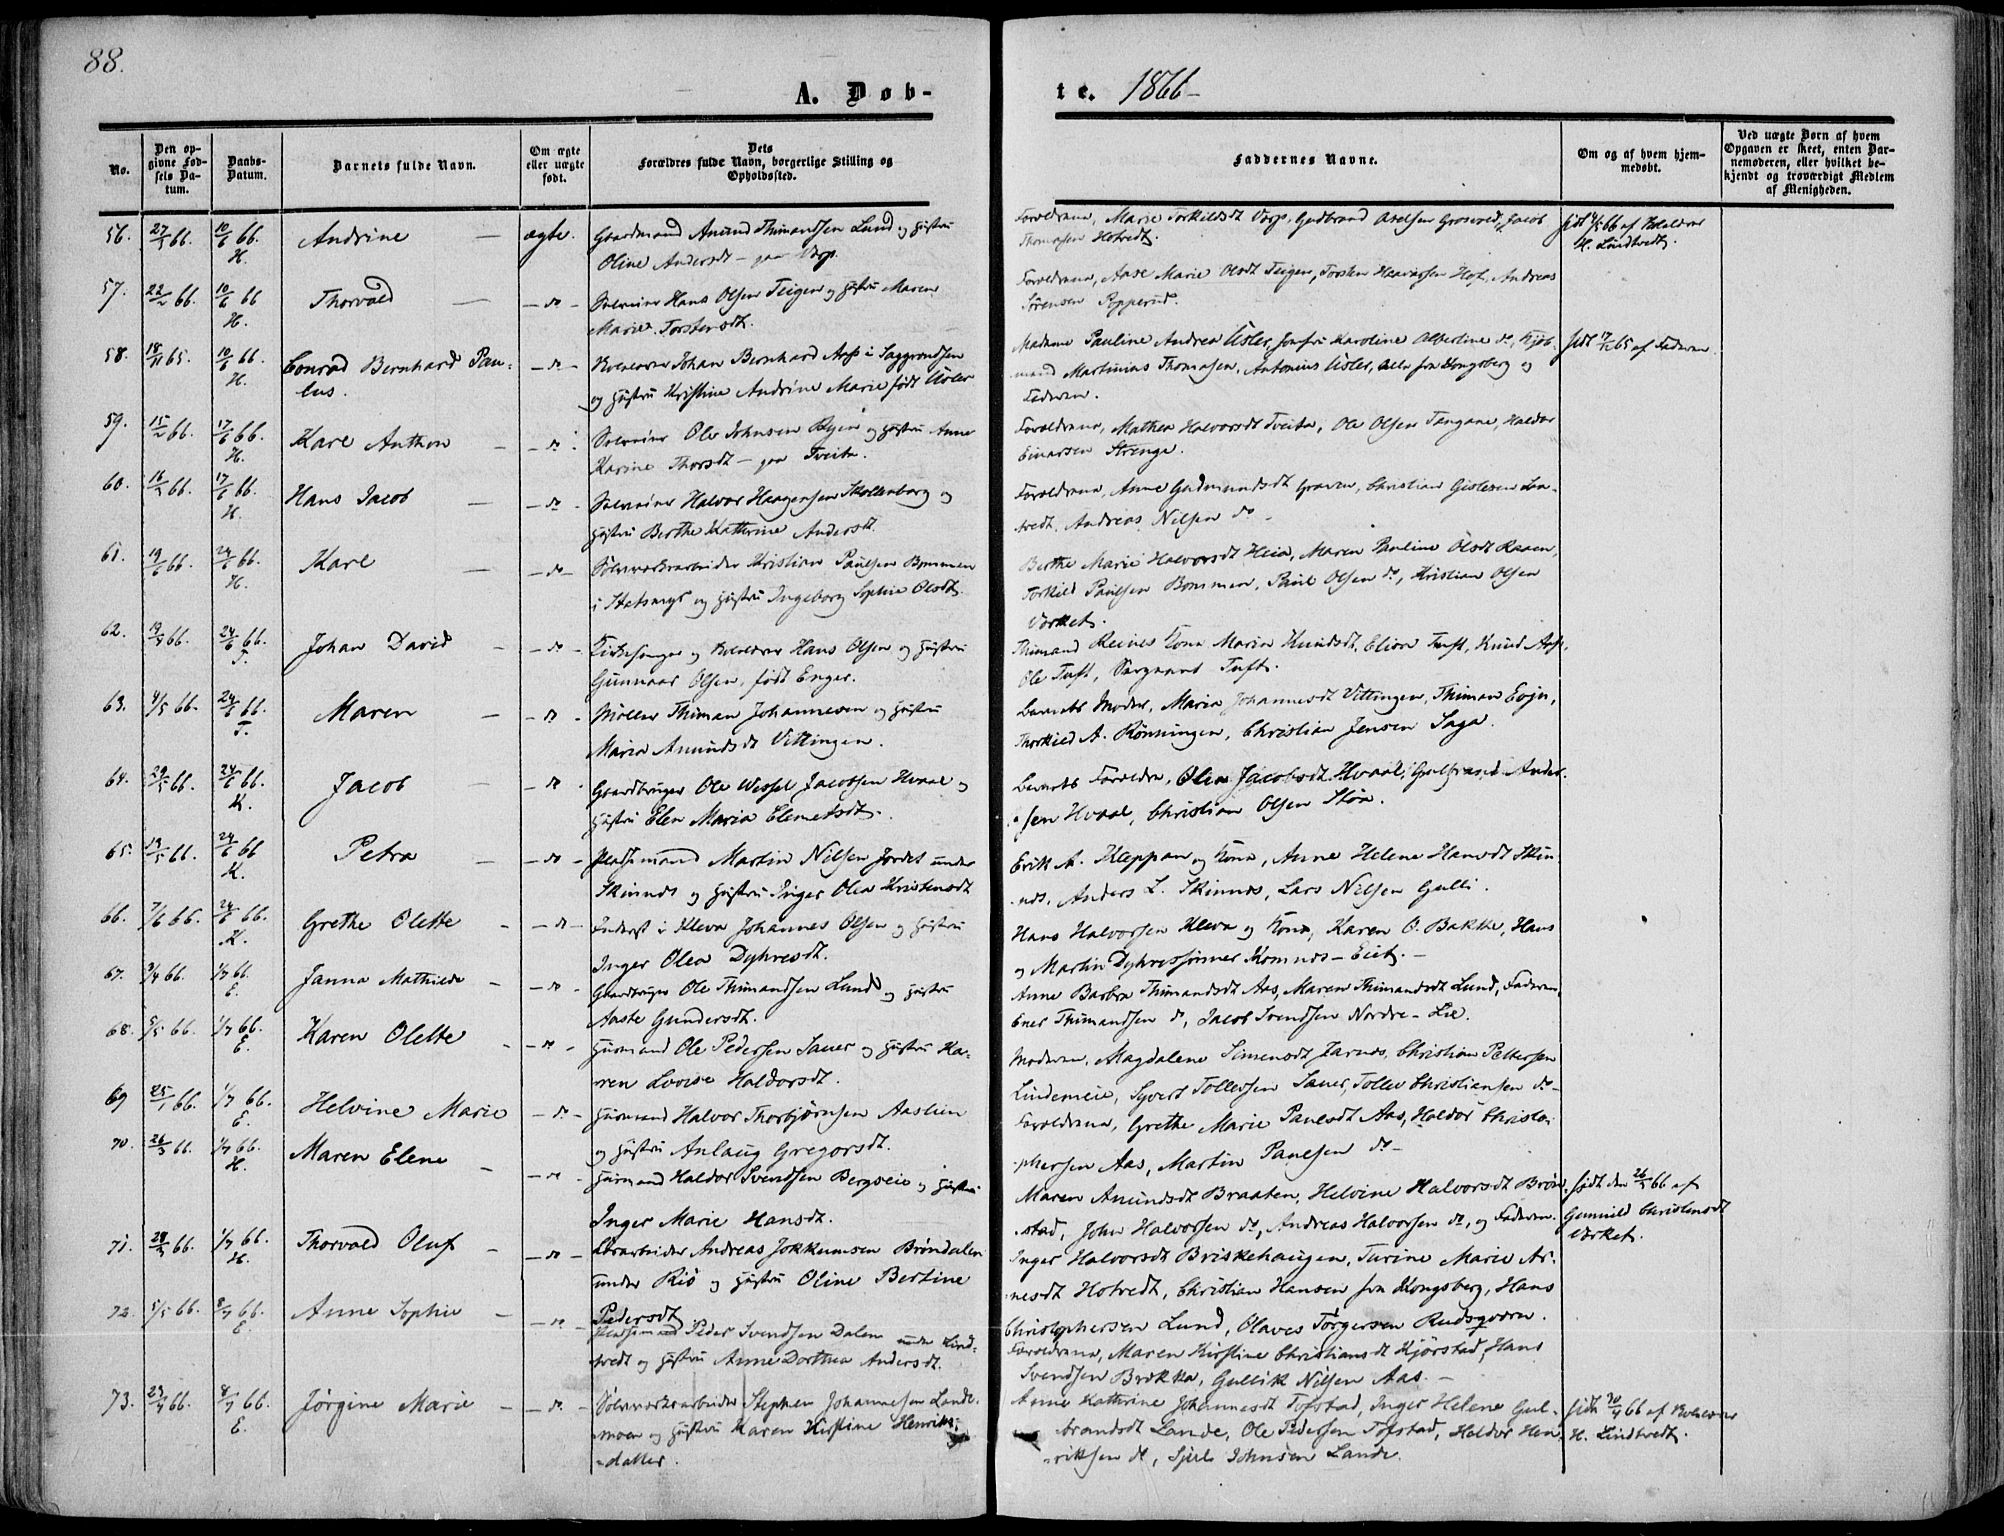 88.
A. Døb-
te. 1866-
No.
Den op-
givne Fød-
sels Da-
tum.
Daabs-
Datum.
Barnets fulde Navn.
Om ægte
eller uægte
født.
Dets
Forældres fulde Navn, borgerlige Stilling og
Opholdssted.
Faddernes Navne.
Om og af hvem hjem-
medøbt.
Ved uægte Børn af hvem
Opgaven er skeet, enten Bar-
nemoderen, eller hvilket be-
kjendt og troværdigt Medlem
af Menigheden.
56. 27/5 66. 10/6 66. H. Andrine — ægte. Gaardmand Amund Thimandsen Lund og Hustru
Oline Andersdt - paa Varp.
Forældrene, Marie Torkildsdt Varp, Gudbrand Axelsen Grosvold, Jacob
Thomasen Hotvedt.
H. Lindtvedt.
57. 22/2 66. 10/6 66 H. Thorvald — - do - Selveier Hans Olsen Teigen og Hustru Maren
Marie Torstensdt.
Forældrene, Aase Marie Olsdt Teigen, Torsten Haavarsen Hof, Andreas
Sörensen Popperud.
58. 18/11 65. 10/6 66. H. Conrad Bernhard Pau-
lus. - do - Johan Bernhard Aass i Saggrendsen
og Hustru Kristine Andrine Marie født Usler
Madame Pauline Andrea Usler, Jomfru Karoline Albertine do, Kjøb-
mand Martinius Thomasen, Antonius Usler, alle fra Kongsberg og
Faderen.
af Faderen.
59. 15/2 66. 17/6 66. H. Karl Anthon - - do - Selveier Ole Johnsen Byin og Hustru Anne
Karine Thorsdt - paa Tveita.
Forældrene, Mathea Halvorsdt Tveita, Ole Olsen Tangane, Haldor
Einarsen Strenge.
60. 17/6 66. H. Hans Jacob — - do - Selveier Halvor Haagensen Skollenborg og
Hustru Berthe Kathrine Andersdt.
Forældrene, Anne Gudmundsdt Graven, Christian Gislesen Lin-
tvedt, Andreas Nilsen do -
61. 19/6 66. 24/6 66. H. Karl — - do - Sølvværksarbeider Kristian Paulsen Bommen
i Hetsmyr og Hustru Ingeborg Sophie Olsdt.
Berthe Marie Halvorsdt Heia, Maren Pauline Olsdt Raaen,
Torkild Paulsen Bommen, Paul Olsen do, Kristian Olsen
Værket.
62. 24/6 66. T. Johan David - - do - Kirkesanger og Hans Olsen og Hustru
Gunnaar Olsen, født Enger.
Thimand Reines Kona Maria Knudsdt, Eliva Tuft, Knud Aas,
Ole Tuft, Sergeant Tuft.
63. 4/5 66. 24/6 66. T. Maren - - do - Møller Thiman Johannesen og Hustru
Maria Amundsdt Vittingen.
Barnets Moder, Maria Johannesdt Vittingen, Thiman Evju,
Thorkild A. Rönningen, Christian Jensen Saga.
64. 29/5 66. 24/6 66. K. Jacob — - do - Gaardbruger Ole Wessel Jacobsen Hvaal og
Hustru Elen Maria Clemetsdt.
Barnets Forældre, Olea Jacobsdt Hvaal, Gulbrand Ander-
sen Hvaal, Christian Olsen Stöa.
65. 19/5 66. 24/6 66 K. Petra - - do - Pladsmand Martin Nilsen Jordet under
Skinnes og Hustru Inger Olea Kristensdt
Erik A. Kleppan og Kona, Anne Helene Hansdt Skin-
nes, Anders L. Skinnes, Lars Nilsen Gulli.
66. 7/6 66. 24/6 66. K. Grethe Olette - - do - Inderst i Kleva Johannes Olsen og Hustru
Inger Olea Dyhresdt.
Hans Halvorsen Kleva og Kona, Karen O. Bakke, Hans
og Martin Dyhressønner Komnes-Eiet.-
67. 3/4 66. 1/7 66. E. Janna Mathilde - - do - Gaardbruger Ole Thimandsen Lund og Hustru
Aaste Gundersdt.
Anne Barbra Thimandsdt Aas, Maren Thimandsdt Lund, Faderen,
Ener Thimandsen do, Jacob Svendsen Nordre-Lie.
68. 5/5 66. 1/7 66. E. Karen Olette - - do - Huusmand Ole Pedersen Sauer og Hustru Ka-
ren Lovise Haldorsdt.
Moderen, Magdalene Simensdt Jarnes, Christian Pettersen
Lindemeie, Syvert Tollevsen Sauer, Tollev Christiansen do-
69 25/1 66. 1/7 66. E. Helvine Marie - do - Huusmand Halvor Thorbjørnsen Aaslien
og Hustru Anlaug Gregorsdt.
Forældrene, Grethe Marie Paulsdt Aas, Haldor Christo-
phersen Aas, Martin Paulsen do-
70. 26/3 66. 1/7 66. H. Maren Elene - - do - Huusmand Haldor Svendsen Bergseie og Hustru
Inger Marie Hansdt.
Maren Amundsdt Braaten, Helvine Halvorsdt Brøn-
stad, John Halvorsen do, Andreas Halvorsen do, og Faderen.
født den 26/3 66 af
Gunnild Christensdt
Værket.
71. 1/7 66. H. Thorvald Oluf - - do - Andreas Jokkumsen Brøndalen
under Riis og Hustru Oline Bertine
Pedersdt
Inger Halvorsdt Briskehaugen, Turine Marie Ar-
nesdt Hotvedt, Christian Hansen fra Kongsberg, Hans
Christophersen Lund, Olaves Törgersen Rudsqværn.
72. 5/5 66. 8/7 66. E. Anne Sophie - - do - Pladsmand Peder Svendsen Dalen under Lind-
tvedt og Hustru Anne Dorthea Andersdt.
Forældrene, Maren Kirstine Christiansdt Kjörstad, Hans
Svendsen Brekka, Gullik Nilsen Aas.-
73. 23/4 66. 8/7 66. E. Jørgine Marie - - do. - Sølvværksarbeider Stephen Johannesen Lande-
moen og Hustru Karen Kirstine Henriks-
datter.
Anne Kathrine Johannesdt Tofstad, Inger Helene Gul-
brandsdt Lande, Ole Pedersen Tofstad, Haldor Hen-
riksen do, Sjul Johnsen Lande.
H. Lindtvedt.